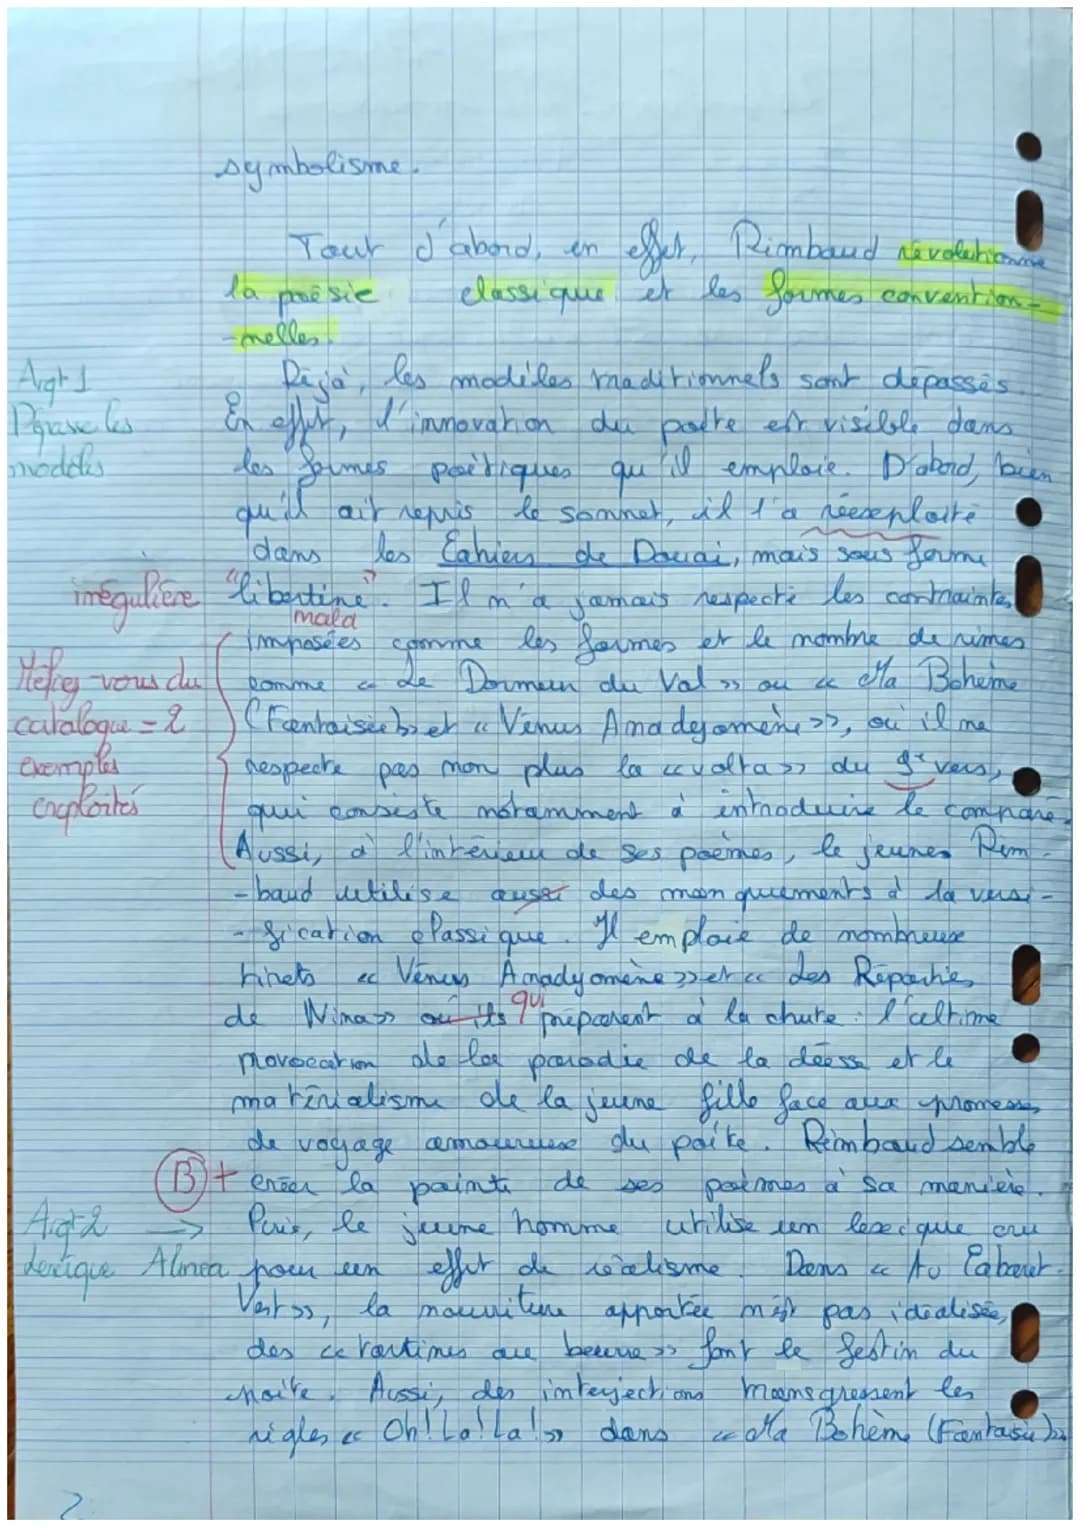 symbolisme.
Tout d'abord, en effet, Rimbaud révolutionne
la poésie classique et les formes convention-
-nelles.
Argt 1
Déjà, les modèles traditionnels sont dépassés.
Dépasse les
En effet, l'innovation du poète est visible dans
modèles
les formes poétiques qu'il emploie. D'abord, bien
qu'il ait repris le sonnet, il l'a réexploité
dans les Cahiers de Douai, mais sous forme
irrégulière
"libertine". Il n'a jamais respecté les contraintes
mala
imposées comme les formes et le nombre de rimes
Méfiez-vous du
comme « Le Dormeur du Val » ou « Ma Bohème
catalogue = 2
(Fantaisie) » et « Vénus Anadyomène », où il ne
exemples
respecte pas non plus la « volta » du 9e vers,
exploités
qui consiste notamment à introduire le comparé.
Aussi, à l'intérieur de ses poèmes, le jeunes Rim-
-baud utilise aussi des manquements à la versi-
-fication classique. Il emploie de nombreux
tirets « Vénus Anadyomène » et « des Réparties
de Nina » où ils qui préparent à la chute : l'ultime
provocation de la parodie de la déesse et le
matérialisme de la jeune fille face aux promesses
de voyage amoureux du poète. Rimbaud semble
B + créer la pointe de ses poèmes à sa manière.
Argt 2 →
Puis, le jeune homme utilise un lexique cru
Lexique Alinéa
pour un effet de réalisme. Dans « Au Cabaret-
Vert », la nourriture apportée n'est pas idéalisée,
des « tartines au beurre » font le festin du
poète. Aussi, des interjections transgressent les
règles « Oh! La! La! » dans « Ma Bohème (Fantaisie) »
2.